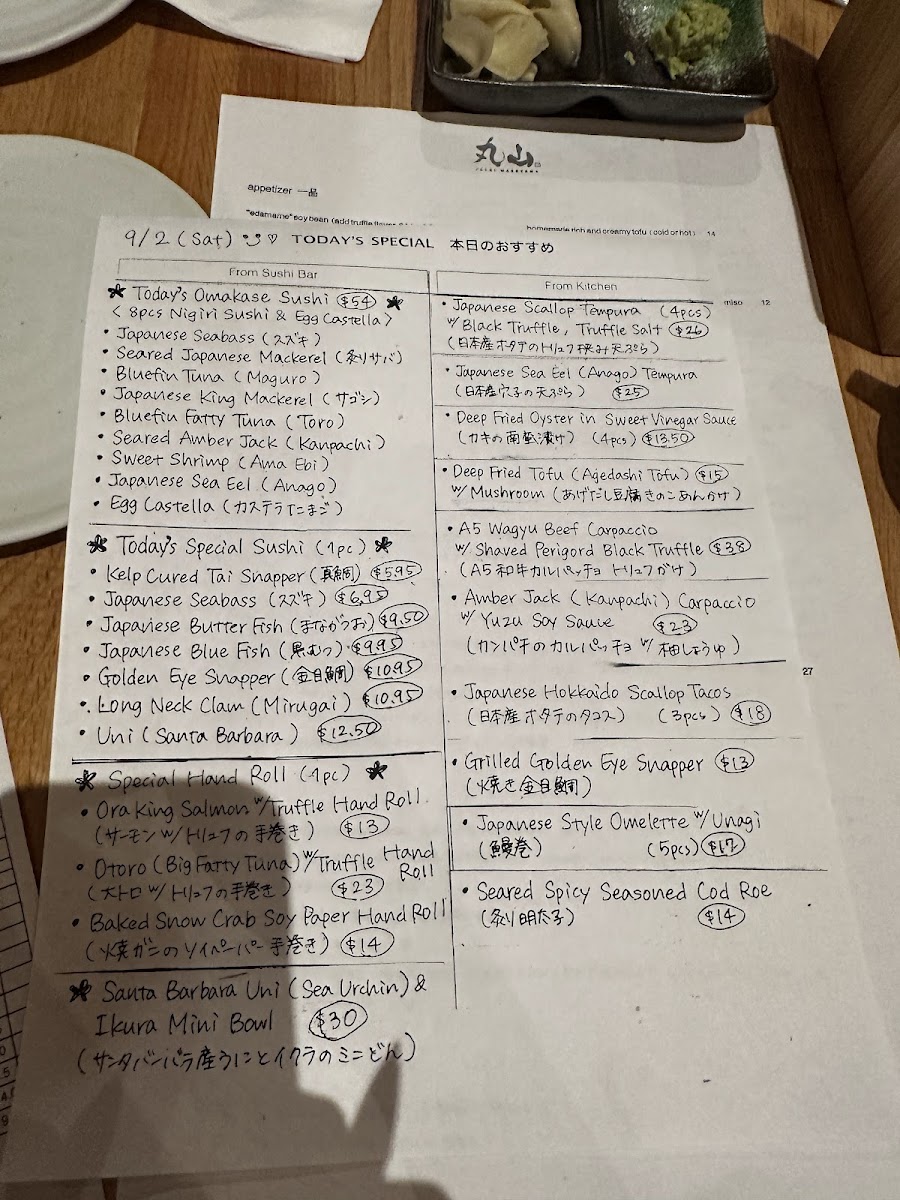 丸山
appetizer 一品
"edamame" soy bean (add truffle flavor
homemade rich and creamy tofu (cold or hot) 14
miso 12
27
9/2 (Sat) TODAY'S SPECIAL 本日のおすすめ
From Sushi Bar
Today's Omakase Sushi $54
< 8pcs Nigiri Sushi & Egg Castella >
• Japanese Seabass (スズキ)
• Seared Japanese Mackerel (炙りサバ)
• Bluefin Tuna (Maguro)
• Japanese King Mackerel (サゴシ)
• Bluefin Fatty Tuna (Toro)
• Seared Amber Jack (Kanpachi)
• Sweet Shrimp (Ama Ebi)
• Japanese Sea Eel (Anago)
• Egg Castella (カステラたまご)
Today's Special Sushi (1pc)
• Kelp Cured Tai Snapper (真鯛) $5.95
• Japanese Seabass (スズキ) $6.95
• Japanese Butter Fish (まながつお) $9.50
• Japanese Blue Fish (黒むつ) $9.95
• Golden Eye Snapper (金目鯛) $10.95
• Long Neck Clam (Mirugai) $10.95
• Uni (Santa Barbara) $12.50
Special Hand Roll (1pc)
• Ora King Salmon w/Truffle Hand Roll
(サーモン w/ トリュフの手巻き) $13
• Otoro (Big Fatty Tuna) w/Truffle Hand Roll
(大トロ w/ トリュフの手巻き) $23
• Baked Snow Crab Soy Paper Hand Roll
(焼ガニのソイペーパー手巻き) $14
Santa Barbara Uni (Sea Urchin) &
Ikura Mini Bowl $30
(サンタバンバラ産うにとイクラのミニどん)
From Kitchen
• Japanese Scallop Tempura (4pcs)
w/ Black Truffle, Truffle Salt $26
(日本産ホタテのトリュフ挟み天ぷら)
• Japanese Sea Eel (Anago) Tempura
(日本産穴子の天ぷら) $25
• Deep Fried Oyster in Sweet Vinegar Sauce
(カキの南蛮漬け) (4pcs) $13.50
• Deep Fried Tofu (Agedashi Tofu) $15
w/ Mushroom (あげだし豆腐きのこあんかけ)
• A5 Wagyu Beef Carpaccio
w/ Shaved Perigord Black Truffle $38
(A5和牛カルパッチョ トリュフがけ)
• Amber Jack (Kanpachi) Carpaccio
w/ Yuzu Soy Sauce $23
(カンパチのカルパッチョ w/ 柚しょうゆ)
• Japanese Hokkaido Scallop Tacos
(日本産ホタテのタコス) (3pcs) $18
• Grilled Golden Eye Snapper $13
(焼き金目鯛)
• Japanese Style Omelette w/ Unagi
(鰻巻) (5pcs) $17
• Seared Spicy Seasoned Cod Roe
(炙り明太子) $14